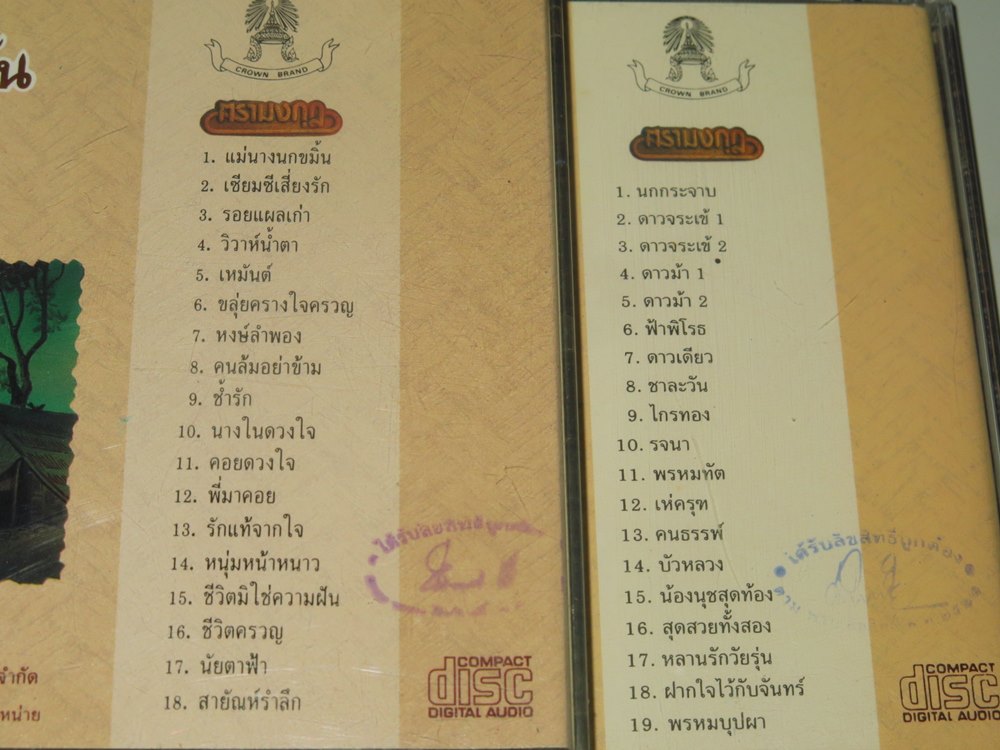 CROWN BRAND
ตรามงกุฎ
1. แม่นางนกขมิ้น
2. เซียมซีเสี่ยงรัก
3. รอยแผลเก่า
4. วิวาห์น้ำตา
5. เหมันต์
6. ขลุ่ยครางใจครวญ
7. หงษ์ลำพอง
8. คนล้มอย่าข้าม
9. ช้ำรัก
10. นางในดวงใจ
11. คอยดวงใจ
12. พี่มาคอย
13. รักแท้จากใจ
14. หนุ่มหน้าหนาว
15. ชีวิตมิใช่ความฝัน
16. ชีวิตครวญ
17. นัยตาฟ้า
18. สายัณห์รำลึก
ได้รับลิขสิทธิ์ถูกต้อง
COMPACT
disc
DIGITAL AUDIO
จำกัด
หน่าย
CROWN BRAND
ตรามงกุฎ
1. นกกระจาบ
2. ดาวจระเข้ 1
3. ดาวจระเข้ 2
4. ดาวม้า 1
5. ดาวม้า 2
6. ฟ้าพิโรธ
7. ดาวเดียว
8. ชาละวัน
9. ไกรทอง
10. รจนา
11. พรหมทัต
12. เห่ครุฑ
13. คนธรรพ์
14. บัวหลวง
15. น้องนุชสุดท้อง
16. สุดสวยทั้งสอง
17. หลานรักวัยรุ่น
18. ฝากใจไว้กับจันทร์
19. พรหมบุปผา
ได้รับลิขสิทธิ์ถูกต้อง
COMPACT
disc
DIGITAL AUDIO